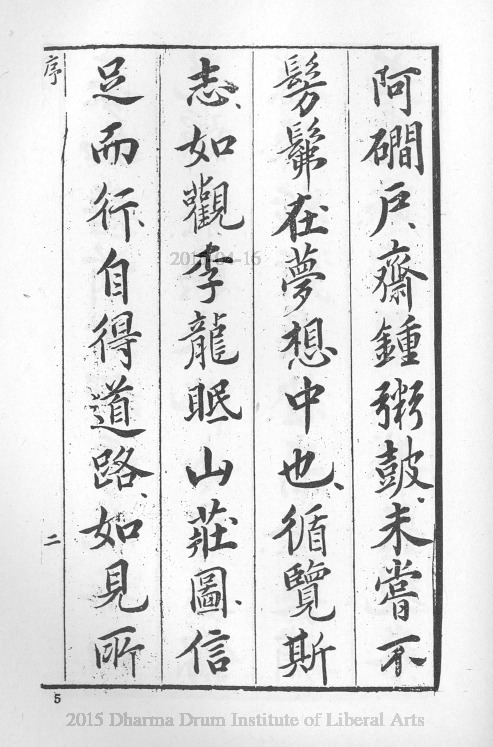 阿磵戶、齋鍾粥鼓。未嘗不
髣髴在夢想中也、循覽斯
志、如觀李龍眠山莊圖、信
足而行、自得道路、如見所
序
二
5
2015 Dharma Drum Institute of Liberal Arts